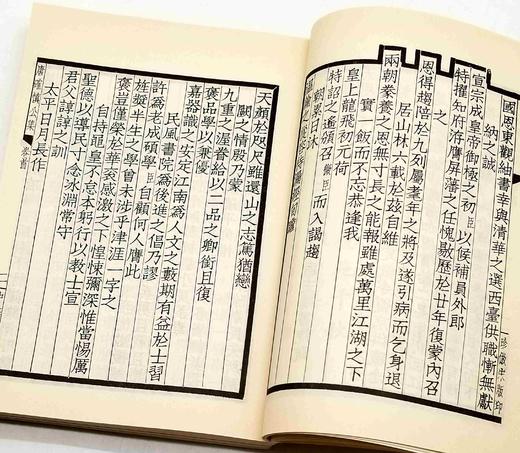 國恩東觀紬書幸與清華之選西臺供職慚無獻
納之誠
宣宗成皇帝御極之初臣以候補員外郎
特擢知府洊膺屏藩之任愧敭歷於廿年復蒙內召
恩得趨陪於九列屬耄年之將及遂引病而乞身退
居山林六載於茲自維
兩朝豢養之恩無寸長之能報雖處萬里江湖之下
實一飯而不忘恭逢我
皇上龍飛初元荷
特詔之遙頒微臣而入謁趨
天顏於咫尺雖還山之志篤猶戀
闕之情殷乃蒙
九重之渥眷給以二品之卿銜且復
褒品學以兼優
嘉器識之安定江南為人文之藪期有益於士習
民風書院為後進之倡乃謬
許為老成碩學臣自顧何人膺此
旌獎半生之學曾未涉乎津涯一字之
褒豈僅榮於華袞感激之下惶悚彌深惟當惕厲
自持皇不忘本躬行以教士宣
聖德以導民寸念冰淵常守
君父諄諄之訓
太平日月長作